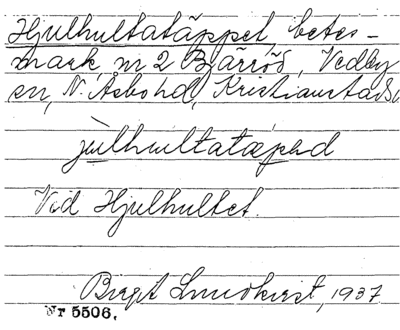 Hjulhultatäppet betes-
mark nr 2 Bjärröd, Vedby
sn, N. Åsbo hd, Kristianstads l.
julhultatæped
Vid Hjulhultet.
Birgit Lundkvist, 1937
Nr 5506.